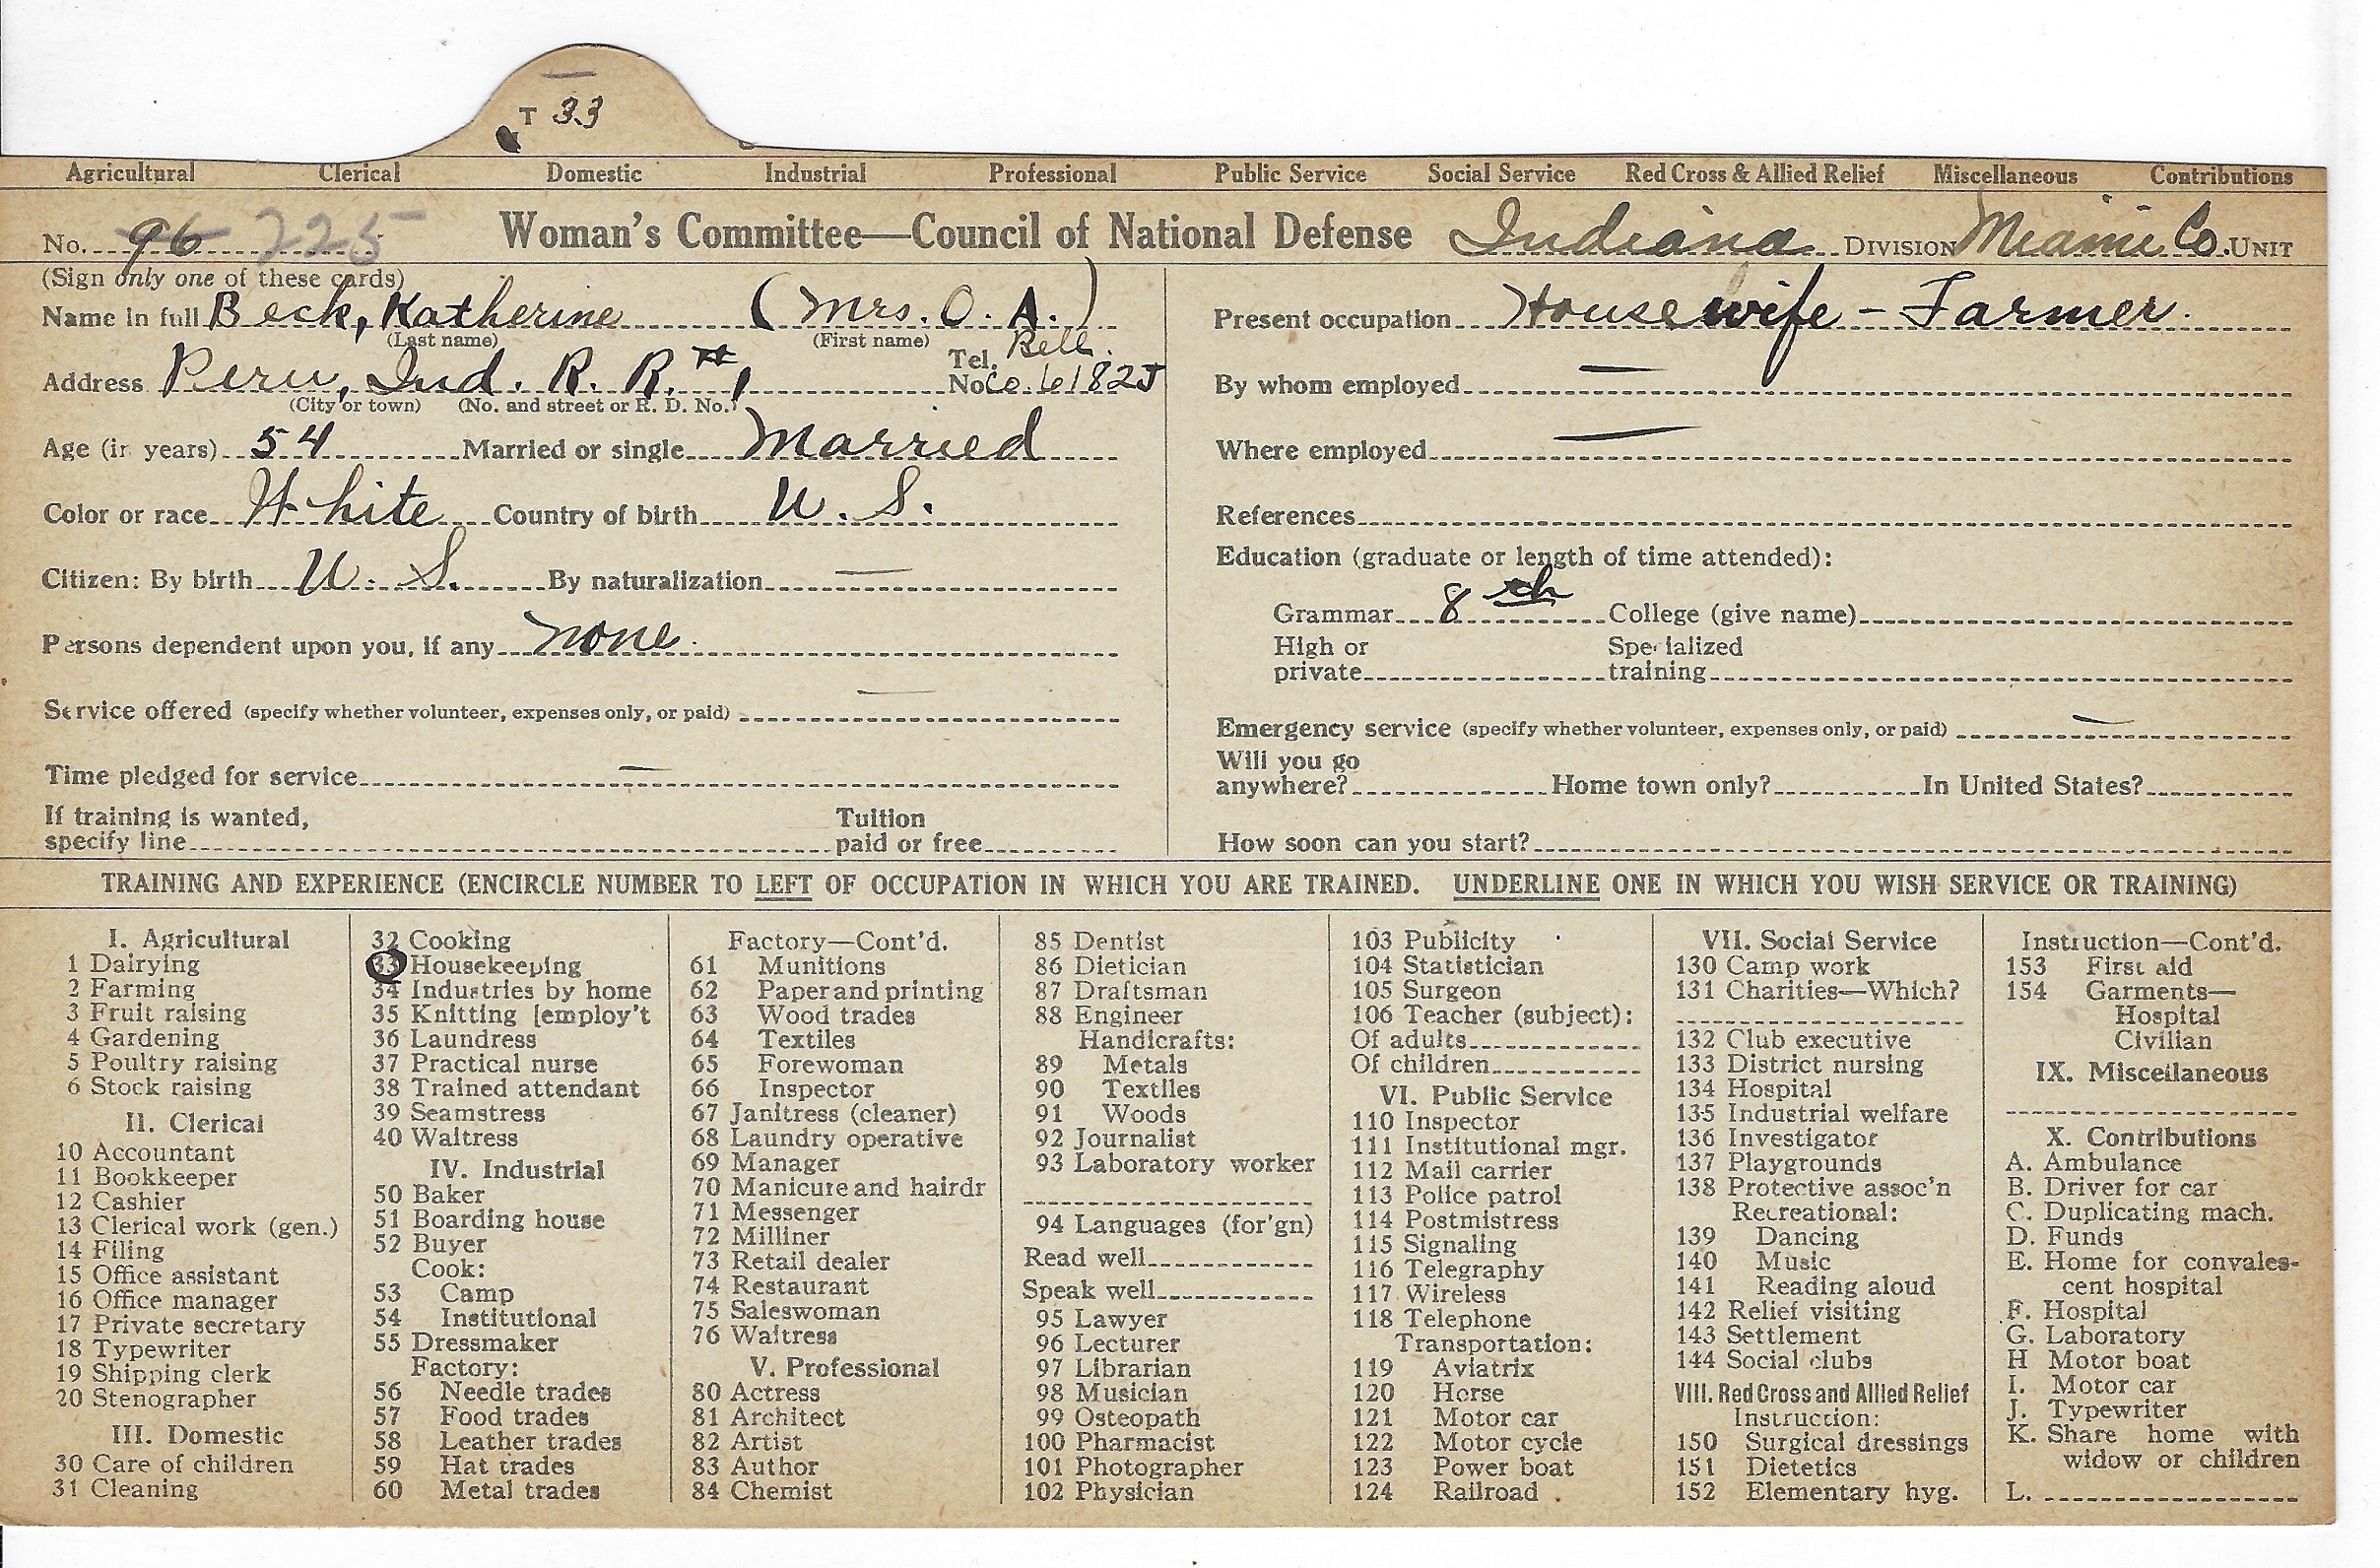 T 33
Agricultural Clerical Domestic Industrial Professional Public Service Social Service Red Cross & Allied Relief Miscellaneous Contributions
No. 96 225 Woman's Committee—Council of National Defense Indiana DIVISION Miami Co. UNIT
(Sign only one of these cards)
Name in full Beck, Katherine (Mrs. O. A.)
(Last name) (First name)
Address Peru, Ind. R. R. #1 Tel. No. Bell Co. 6182J
(City or town) (No. and street or R. D. No.)
Age (in years) 54 Married or single Married
Color or race White Country of birth U. S.
Citizen: By birth U. S. By naturalization —
Persons dependent upon you, if any none.
Service offered (specify whether volunteer, expenses only, or paid) —
Time pledged for service —
If training is wanted,
specify line Tuition paid or free
Present occupation Housewife - Farmer.
By whom employed —
Where employed —
References
Education (graduate or length of time attended):
Grammar 8th College (give name)
High or private Specialized training
Emergency service (specify whether volunteer, expenses only, or paid) —
Will you go
anywhere? Home town only? In United States?
How soon can you start?
TRAINING AND EXPERIENCE (ENCIRCLE NUMBER TO LEFT OF OCCUPATION IN WHICH YOU ARE TRAINED. UNDERLINE ONE IN WHICH YOU WISH SERVICE OR TRAINING)
I. Agricultural
1 Dairying
2 Farming
3 Fruit raising
4 Gardening
5 Poultry raising
6 Stock raising
II. Clerical
10 Accountant
11 Bookkeeper
12 Cashier
13 Clerical work (gen.)
14 Filing
15 Office assistant
16 Office manager
17 Private secretary
18 Typewriter
19 Shipping clerk
20 Stenographer
III. Domestic
30 Care of children
31 Cleaning
32 Cooking
33 Housekeeping
34 Industries by home
35 Knitting [employ't
36 Laundress
37 Practical nurse
38 Trained attendant
39 Seamstress
40 Waitress
IV. Industrial
50 Baker
51 Boarding house
52 Buyer
Cook:
53 Camp
54 Institutional
55 Dressmaker
Factory:
56 Needle trades
57 Food trades
58 Leather trades
59 Hat trades
60 Metal trades
Factory—Cont'd.
61 Munitions
62 Paper and printing
63 Wood trades
64 Textiles
65 Forewoman
66 Inspector
67 Janitress (cleaner)
68 Laundry operative
69 Manager
70 Manicure and hairdr
71 Messenger
72 Milliner
73 Retail dealer
74 Restaurant
75 Saleswoman
76 Waitress
V. Professional
80 Actress
81 Architect
82 Artist
83 Author
84 Chemist
85 Dentist
86 Dietician
87 Draftsman
88 Engineer
Handicrafts:
89 Metals
90 Textiles
91 Woods
92 Journalist
93 Laboratory worker
94 Languages (for'gn)
Read well
Speak well
95 Lawyer
96 Lecturer
97 Librarian
98 Musician
99 Osteopath
100 Pharmacist
101 Photographer
102 Physician
103 Publicity
104 Statistician
105 Surgeon
106 Teacher (subject):
Of adults
Of children
VI. Public Service
110 Inspector
111 Institutional mgr.
112 Mail carrier
113 Police patrol
114 Postmistress
115 Signaling
116 Telegraphy
117 Wireless
118 Telephone
Transportation:
119 Aviatrix
120 Horse
121 Motor car
122 Motor cycle
123 Power boat
124 Railroad
VII. Social Service
130 Camp work
131 Charities—Which?
132 Club executive
133 District nursing
134 Hospital
135 Industrial welfare
136 Investigator
137 Playgrounds
138 Protective assoc'n
Recreational:
139 Dancing
140 Music
141 Reading aloud
142 Relief visiting
143 Settlement
144 Social clubs
VIII. Red Cross and Allied Relief
Instruction:
150 Surgical dressings
151 Dietetics
152 Elementary hyg.
Instruction—Cont'd.
153 First aid
154 Garments—
Hospital
Civilian
IX. Miscellaneous
X. Contributions
A. Ambulance
B. Driver for car
C. Duplicating mach.
D. Funds
E. Home for convales-
cent hospital
F. Hospital
G. Laboratory
H Motor boat
I. Motor car
J. Typewriter
K. Share home with
widow or children
L.